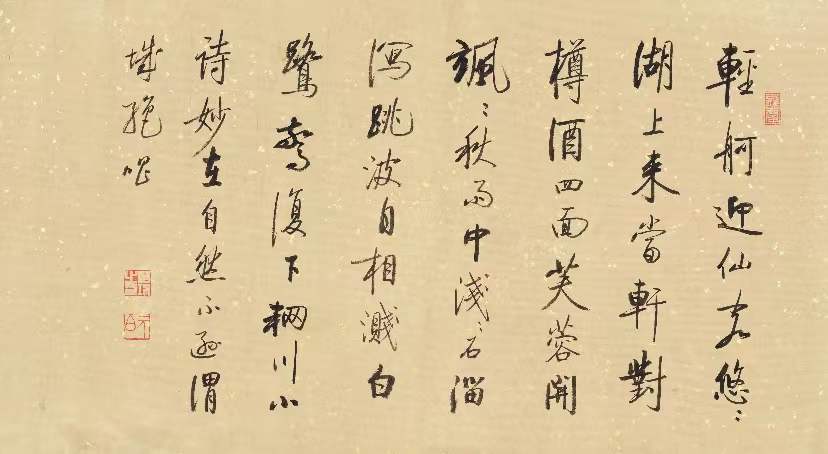 輕舸迎仙客悠〻
湖上来當軒對
樽酒四面芙蓉開
颯〻秋雨中淺〻石溜
瀉跳波自相濺白
鷺驚復下輞川小
詩妙在自然不遜渭
城絶唱